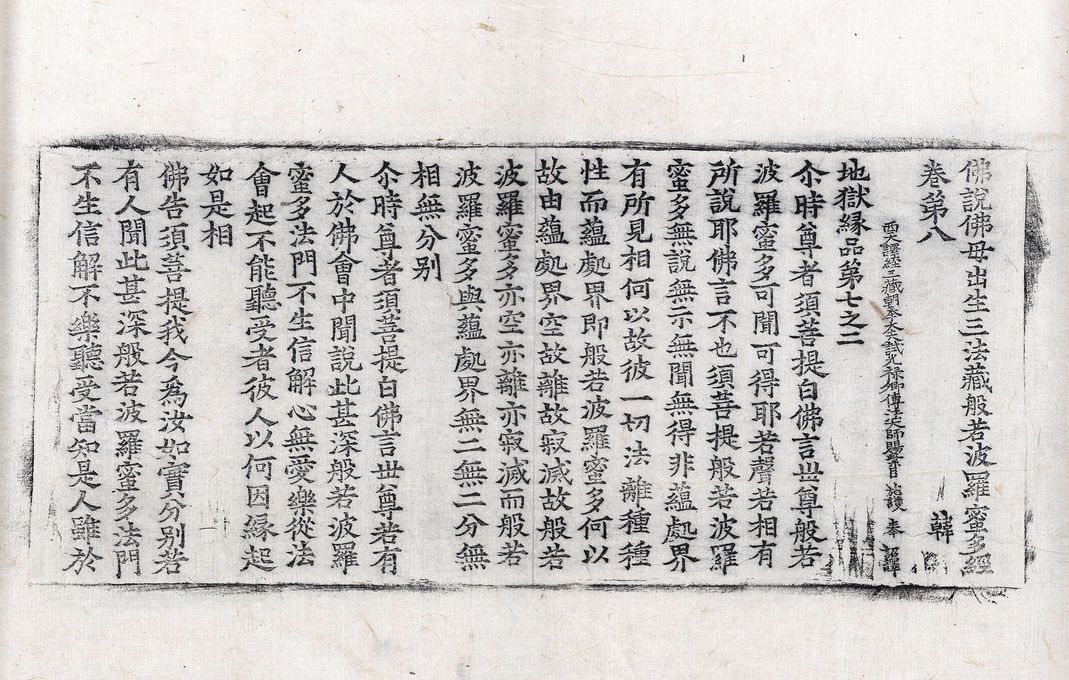 佛說佛母出生三法藏般若波羅蜜多經
卷第八 韓
西天譯經三藏朝奉大夫試光祿卿傳法大師賜紫臣施護奉 詔譯
地獄緣品第七之二
尒時尊者須菩提白佛言世尊般若
波羅蜜多可聞可得耶若聲若相有
所說耶佛言不也須菩提般若波羅
蜜多無說無示無聞無得非蘊處界
有所見相何以故彼一切法離種種
性而蘊處界即般若波羅蜜多何以
故由蘊處界空故離故寂滅故般若
波羅蜜多亦空亦離亦寂滅而般若
波羅蜜多與蘊處界無二無二分無
相無分别
尒時尊者須菩提白佛言世尊若有
人於佛會中聞說此甚深般若波羅
蜜多法門不生信解心無愛樂從法
會起不能聽受者彼人以何因緣起
如是相
佛告須菩提我今爲汝如實分别若
有人聞此甚深般若波羅蜜多法門
不生信解不樂聽受當知是人雖於